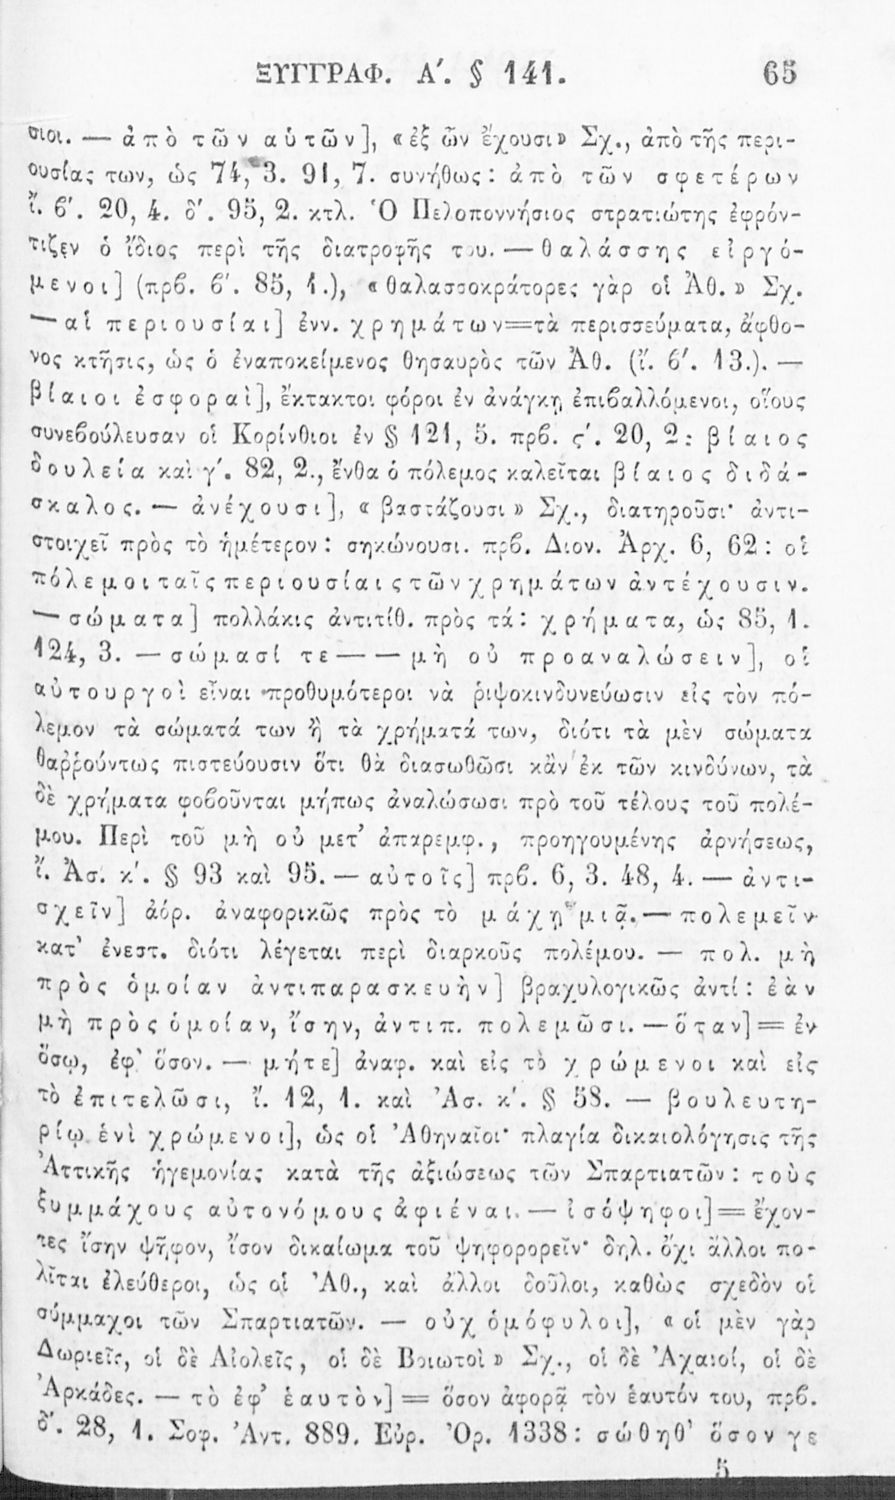 ΞΥΓΓΡΑΦ. Α΄. § 141. 65
σιοι. — ἀπὸ τῶν αὑτῶν], «ἐξ ὧν ἔχουσι» Σχ., ἀπὸ τῆς περι-
ουσίας των, ὡς 74, 3. 91, 7. συνήθως: ἀπὸ τῶν σφετέρων
ἴ. β΄. 20, 4. δ΄. 95, 2. κτλ. Ὁ Πελοποννήσιος στρατιώτης ἐφρόν-
τιζεν ὁ ἴδιος περὶ τῆς διατροφῆς του. — θαλάσσης εἰργό-
μενοι] (πρβ. β΄. 85, 1.), «θαλασσοκράτορες γὰρ οἱ Ἀθ.» Σχ.
— αἱ περιουσίαι] ἐνν. χρημάτων=τὰ περισσεύματα, ἄφθο-
νος κτῆσις, ὡς ὁ ἐναποκείμενος θησαυρὸς τῶν Ἀθ. (ἴ. β΄. 13.). —
βίαιοι ἐσφοραὶ], ἔκτακτοι φόροι ἐν ἀνάγκῃ ἐπιβαλλόμενοι, οἵους
συνεβούλευσαν οἱ Κορίνθιοι ἐν § 121, 5. πρβ. ς΄. 20, 2: βίαιος
δουλεία καὶ γ΄. 82, 2., ἔνθα ὁ πόλεμος καλεῖται βίαιος διδά-
σκαλος. — ἀνέχουσι], «βαστάζουσι» Σχ., διατηροῦσι· ἀντι-
στοιχεῖ πρὸς τὸ ἡμέτερον: σηκώνουσι. πρβ. Διον. Ἀρχ. 6, 62: οἱ
πόλεμοι ταῖς περιουσίαις τῶν χρημάτων ἀντέχουσιν.
— σώματα] πολλάκις ἀντιτίθ. πρὸς τά: χρήματα, ὡς 85, 1.
124, 3. — σώμασί τε — — μὴ οὐ προαναλώσειν], οἱ
αὐτουργοὶ εἶναι προθυμότεροι νὰ ῥιψοκινδυνεύωσιν εἰς τὸν πό-
λεμον τὰ σώματά των ἢ τὰ χρήματά των, διότι τὰ μὲν σώματα
θαῤῥούντως πιστεύουσιν ὅτι θὰ διασωθῶσι κἂν ἐκ τῶν κινδύνων, τὰ
δὲ χρήματα φοβοῦνται μήπως ἀναλώσωσι πρὸ τοῦ τέλους τοῦ πολέ-
μου. Περὶ τοῦ μὴ οὐ μετ' ἀπαρεμφ., προηγουμένης ἀρνήσεως,
ἴ. Ἀσ. κ΄. § 93 καὶ 95. — αὐτοῖς] πρβ. 6, 3. 48, 4. — ἀντι-
σχεῖν] ἀόρ. ἀναφορικῶς πρὸς τὸ μάχῃ μιᾷ. — πολεμεῖν
κατ' ἐνεστ. διότι λέγεται περὶ διαρκοῦς πολέμου. — πολ. μὴ
πρὸς ὁμοίαν ἀντιπαρασκευὴν] βραχυλογικῶς ἀντί: ἐὰν
μὴ πρὸς ὁμοίαν, ἴσην, ἀντιπ. πολεμῶσι. — ὅταν] = ἐν
ὅσῳ, ἐφ' ὅσον. — μήτε] ἀναφ. καὶ εἰς τὸ χρώμενοι καὶ εἰς
τὸ ἐπιτελῶσι, ἴ. 12, 1. καὶ Ἀσ. κ΄. § 58. — βουλευτη-
ρίῳ ἑνὶ χρώμενοι], ὡς οἱ Ἀθηναῖοι· πλαγία δικαιολόγησις τῆς
Ἀττικῆς ἡγεμονίας κατὰ τῆς ἀξιώσεως τῶν Σπαρτιατῶν: τοὺς
ξυμμάχους αὐτονόμους ἀφιέναι. — ἰσόψηφοι] = ἔχον-
τες ἴσην ψῆφον, ἴσον δικαίωμα τοῦ ψηφορορεῖν· δηλ. ὄχι ἄλλοι πο-
λῖται ἐλεύθεροι, ὡς οἱ Ἀθ., καὶ ἄλλοι δοῦλοι, καθὼς σχεδὸν οἱ
σύμμαχοι τῶν Σπαρτιατῶν. — οὐχ ὁμόφυλοι], «οἱ μὲν γὰρ
Δωριεῖς, οἱ δὲ Αἰολεῖς, οἱ δὲ Βοιωτοὶ» Σχ., οἱ δὲ Ἀχαιοί, οἱ δὲ
Ἀρκάδες. — τὸ ἐφ' ἑαυτὸν] = ὅσον ἀφορᾷ τὸν ἑαυτόν του, πρβ.
δ΄. 28, 1. Σοφ. Ἀντ. 889. Εὐρ. Ὀρ. 1338: σώθηθ' ὅσον γε
5